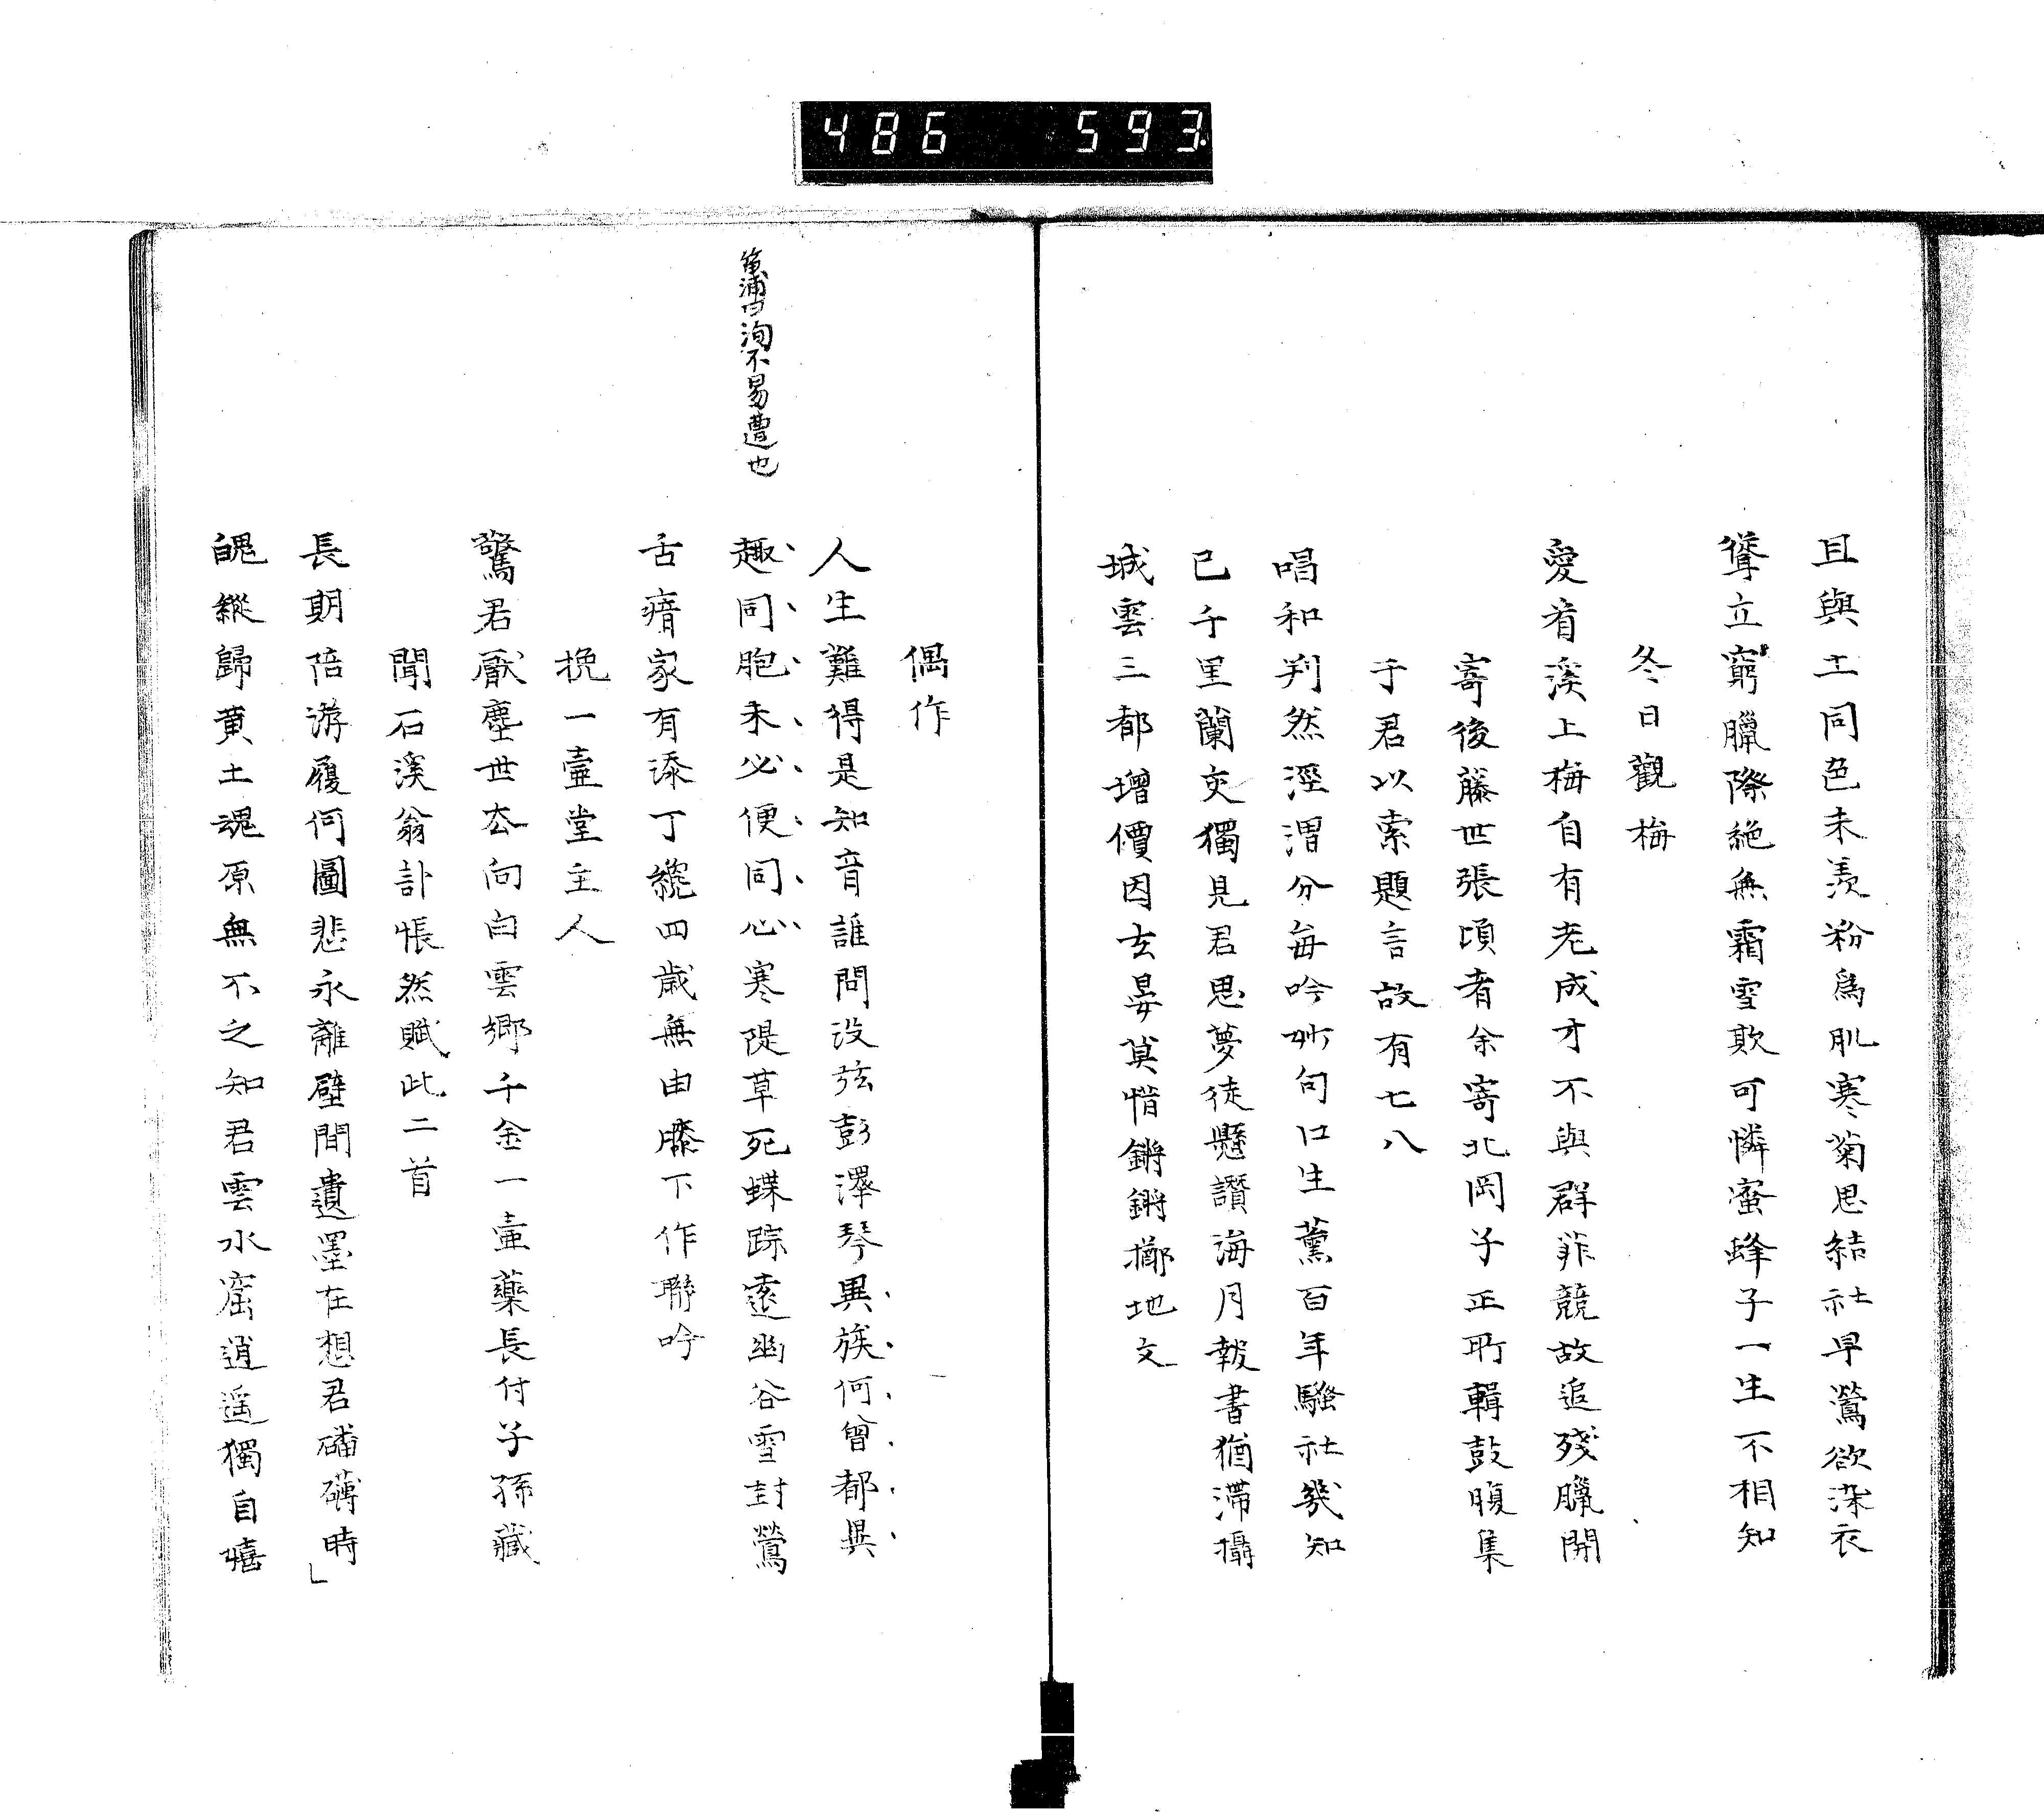 486 593
且與土同色未羨粉爲肌寒菊思結社早鶯欲染衣
聳立窮臘際絶無霜雪欺可憐蜜蜂子一生不相知
冬日觀梅
愛看溪上梅自有老成才不與群菲競故追殘臘開
寄後藤世張頃者余寄北岡子正所輯鼓腹集
于君以索題言故有七八
唱和判然涇渭分每吟妙句口生薰百年騷社幾知
已千里蘭交獨見君思夢徒懸讚海月報書猶滯攝
城雲三都增價因玄晏莫惜鏘鏘擲地文
偶作
人生難得是知音誰問没弦彭澤琴異族何曾都異
趣同胞未必便同心寒隄草死蝶踪遠幽谷雪封鶯
舌瘖家有添丁纔四歳無由膝下作聯吟
篁浦曰洵不易遭也
挽一壺堂主人
驚君厭塵世去向白雲郷千金一壷藥長付子孫藏
聞石溪翁訃悵然賦此二首
長期陪游履何圖悲永離壁間遺墨在想君礴礴時」
魄縱歸黄土魂原無不之知君雲水窟逍遥獨自嬉